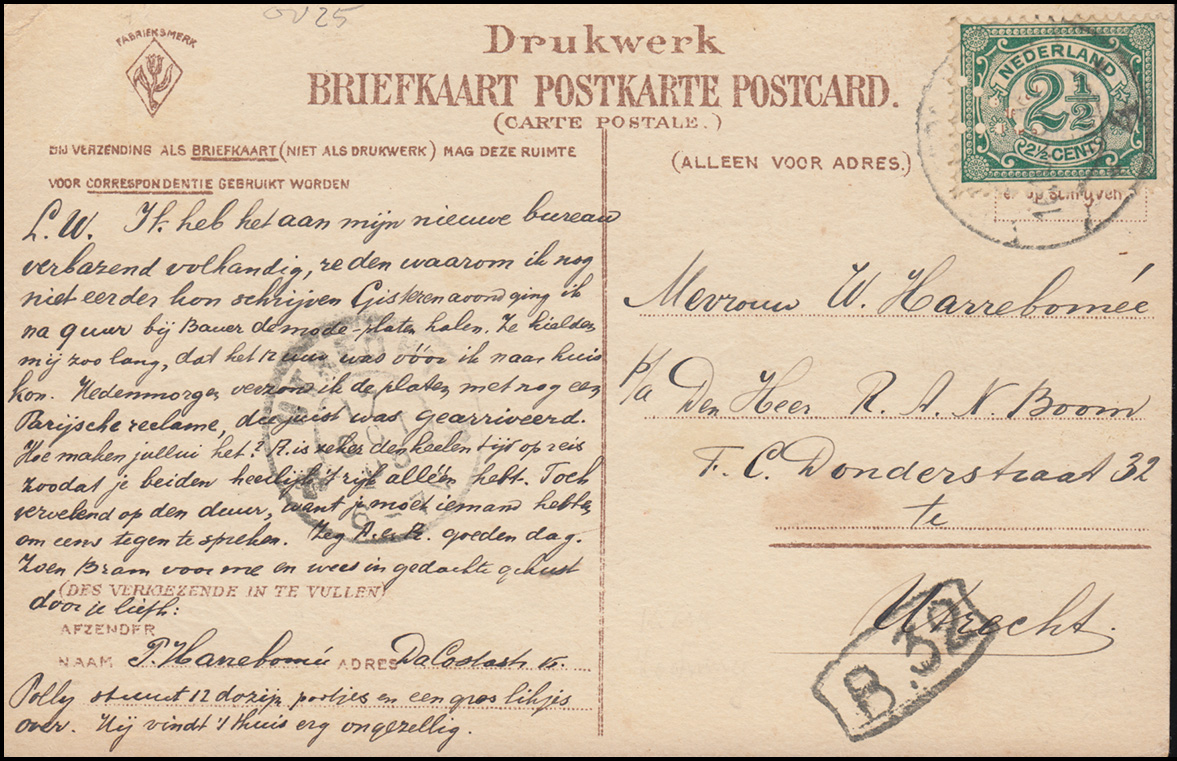 OV 25
FABRIEKSMERK
Drukwerk
BRIEFKAART POSTKARTE POSTCARD.
(CARTE POSTALE.)
BIJ VERZENDING ALS BRIEFKAART (NIET ALS DRUKWERK) MAG DEZE RUIMTE
VOOR CORRESPONDENTIE GEBRUIKT WORDEN
(ALLEEN VOOR ADRES.)
NEDERLAND
2 1/2
2½ CENT
op schrijven
L. W. Ik heb het aan mijn nieuwe bureau
verbazend volhandig, reden waarom ik nog
niet eerder kon schrijven Gisterenavond ging ik
na 9 uur bij Bauer de mode-platen halen. Ze hielden
mij zoo lang, dat het 12 uur was vóór ik naar huis
kon. Hedenmorgen verzon ik de platen, met nog een
Parijsche reclame, die juist was gearriveerd.
Hoe maken jullui het? R. is zeker den heelen tijd op reis
zoodat je beiden heerlijk 't rijk alléén hebt. Toch
vervelend op den duur, want je moet iemand hebben
om eens tegen te spreken. Zeg A. en R. goeden dag.
Zoen Bram voor me en wees in gedachte gekust
(DES VERKIEZENDE IN TE VULLEN)
door je liefh:
AFZENDER
NAAM P. Harrebomée ADRES DaCostastr
Polly stuurt 12 dozijn pootjes en een gros likjes
over. Hij vindt 't thuis erg ongezellig.
Mevrouw W. Harrebomée
p/a Den Heer R. A. N. Boom
F. C. Donderstraat 32
te
Utrecht.
B.32